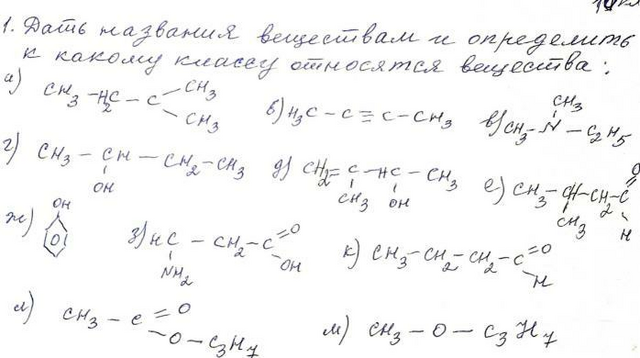 1. Дать названия веществам и определить
к какому классу относятся вещества:
а) CH3 - H2C - C - CH3
CH3
б) H3C - C ≡ C - CH3
в) CH3 - N - C2H5
CH3
г) CH3 - CH - CH2 - CH3
OH
д) CH2 = C - HC - CH3
CH3 OH
е) CH3 - CH - CH2 - C = O
CH3 H
ж) OH
з) HC - CH2 - C = O
NH2 OH
к) CH3 - CH2 - CH2 - C = O
H
л) CH3 - C = O
O - C3H7
м) CH3 - O - C3H7